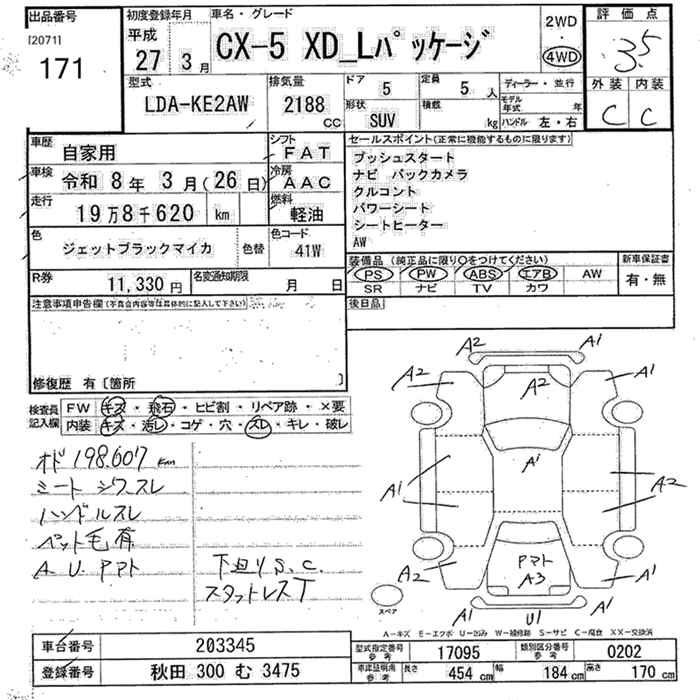 出品番号
[2071]
171
初度登録年月
平成
27 3月
車名・グレード
CX-5 XD_Lパッケージ
2WD
・
4WD
評価点
3.5
外装 内装
C C
型式
LDA-KE2AW
排気量
2188 cc
ドア 5
形状 SUV
定員 5 人
積載 kg
ディーラー・並行
モデル年式 年
ハンドル 左・右
車歴 自家用
車検 令和 8年 3月(26日)
走行 19万8千620 km
色 ジェットブラックマイカ 色替
R券 11,330円
名変通知期限 月 日
シフト FAT
冷房 AAC
燃料 軽油
色コード 41W
セールスポイント(正常に機能するものに限ります)
プッシュスタート
ナビ バックカメラ
クルコント
パワーシート
シートヒーター
AW
装備品(純正品に限り○をつけてください)
PS PW ABS エアB AW
SR ナビ TV カワ
新車保証書
有・無
後日品
注意事項申告欄(不具合内容等は具体的に記入して下さい)
修復歴 有〔箇所 〕
検査員記入欄
FW キズ・飛石・ヒビ割・リペア跡・×要
内装 キズ・汚レ・コゲ・穴・スレ・キレ・破レ
オド 198,607km
シート シワ、スレ
ハンドルスレ
ペット毛有
A.U.Pマト
下廻りS.C.
スタットレスT
A2 A1
A2 A2 A1
A1
A1 A2
A2 Pマト A3 A1
U1
スペア
A-キズ E-エクボ U-凹み W-補修跡 S-サビ C-腐食 XX-交換済
車台番号 203345
登録番号 秋田 300 む 3475
型式指定番号 参考 17095
類別区分番号 参考 0202
車庫証明用 参考 長さ 454 cm 幅 184 cm 高さ 170 cm